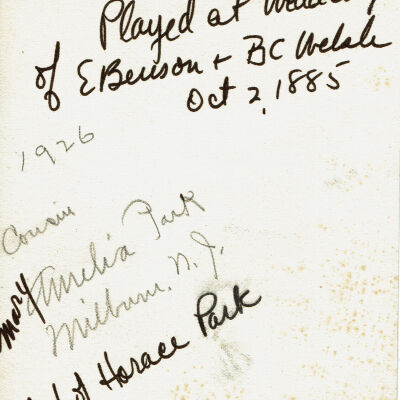 Played at Wedding
of E Benson + BC Welsh
Oct 2, 1885
1926
Cousin
Mary Amelia Park
Milburn. N.J.
of Horace Park